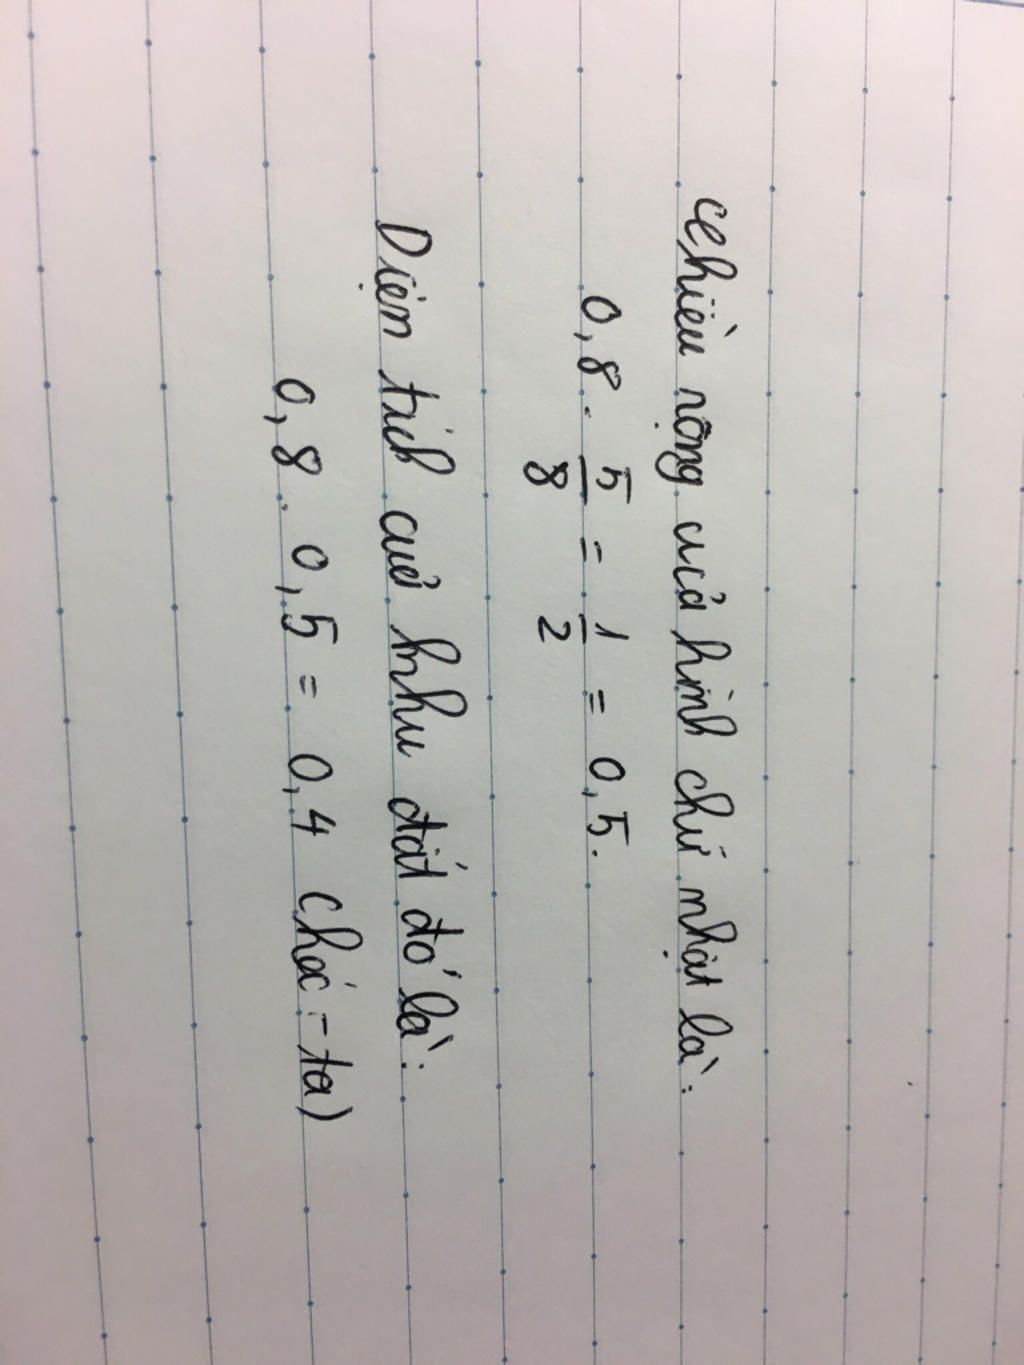 Chiều rộng của hình chữ nhật là:
0,8 . 5/8 = 1/2 = 0,5.
Diện tích của khu đất đó là:
0,8 . 0,5 = 0,4 (héc-ta)